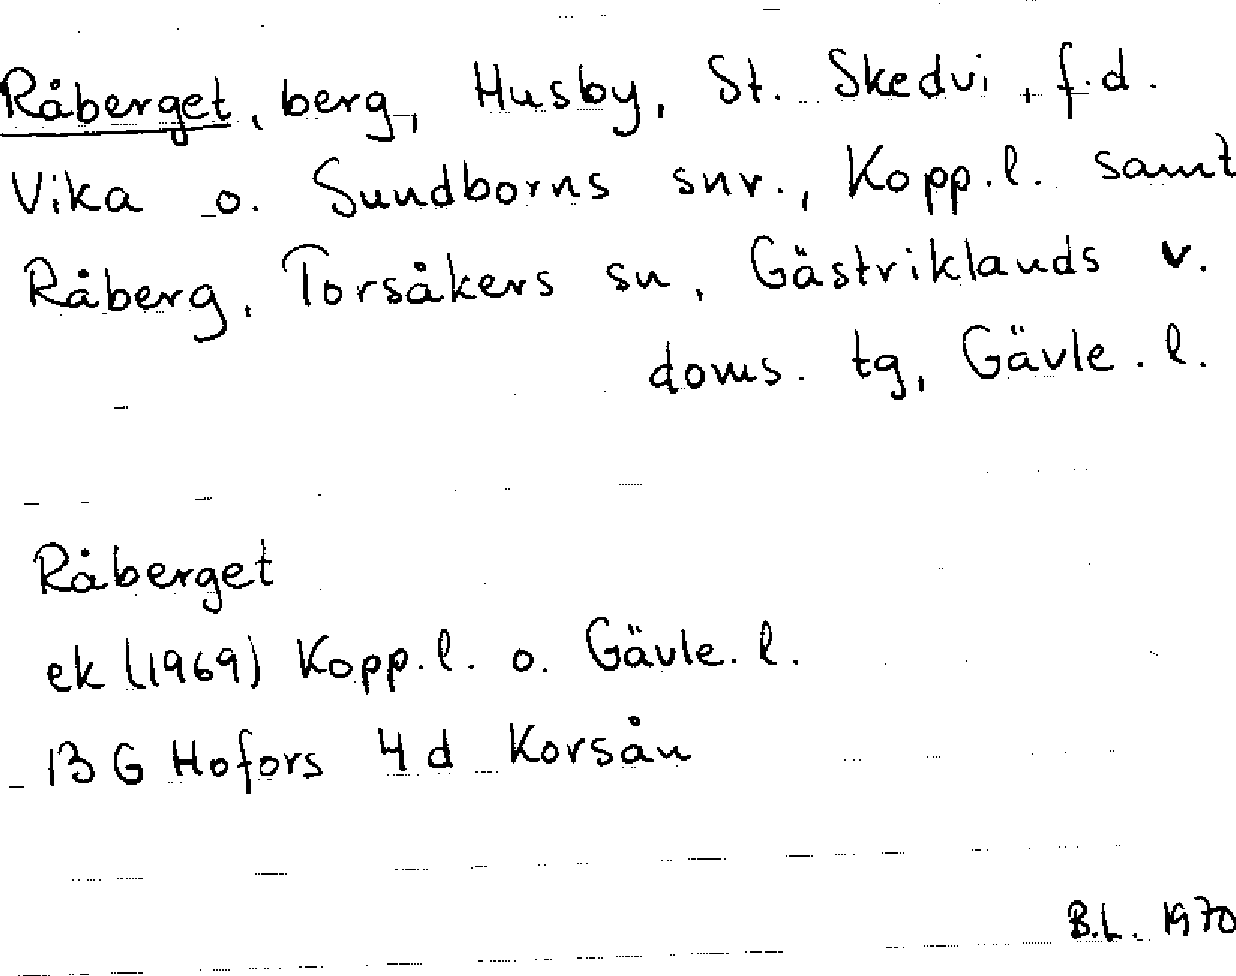 Råberget, berg, Husby, St. Skedvi, f.d.
Vika o. Sundborns snr., Kopp.l. samt
Råberg, Torsåkers sn, Gästriklands v.
doms. tg, Gävle.l.
Råberget
ek (1969) Kopp.l. o. Gävle.l.
13 G Hofors 4d Korsån
B.L. 1970